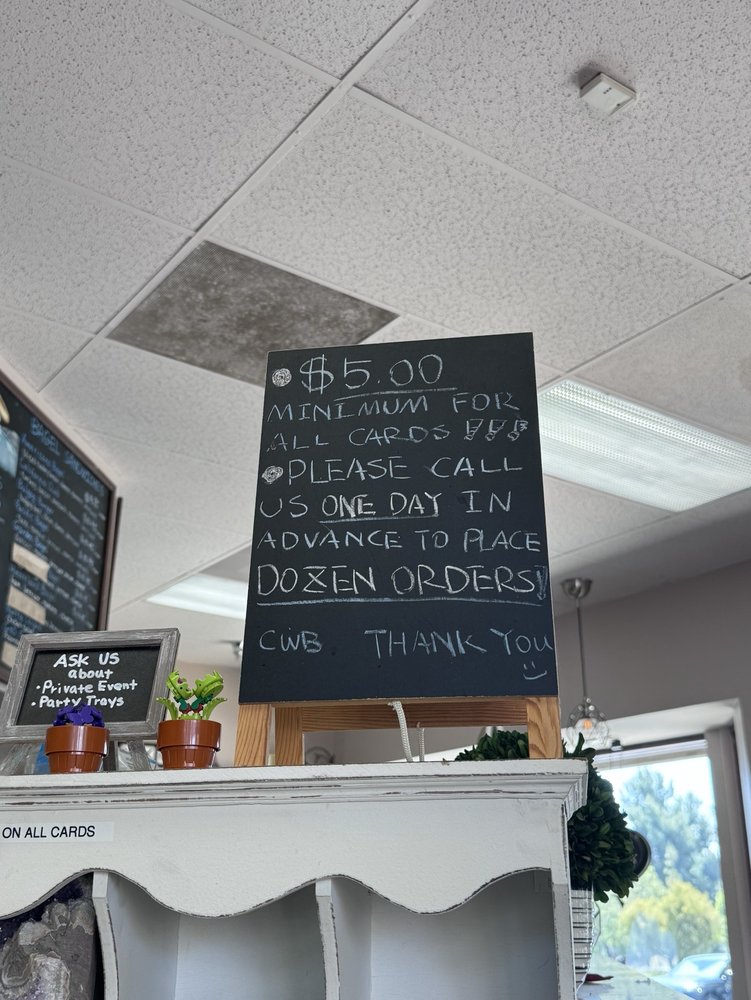 $5.00
MINIMUM FOR
ALL CARDS !!!
PLEASE CALL
US ONE DAY IN
ADVANCE TO PLACE
DOZEN ORDERS!
CWB THANK YOU
ASK US
about
• Private Event
• Party Trays
ON ALL CARDS
BAGEL SANDWICHES